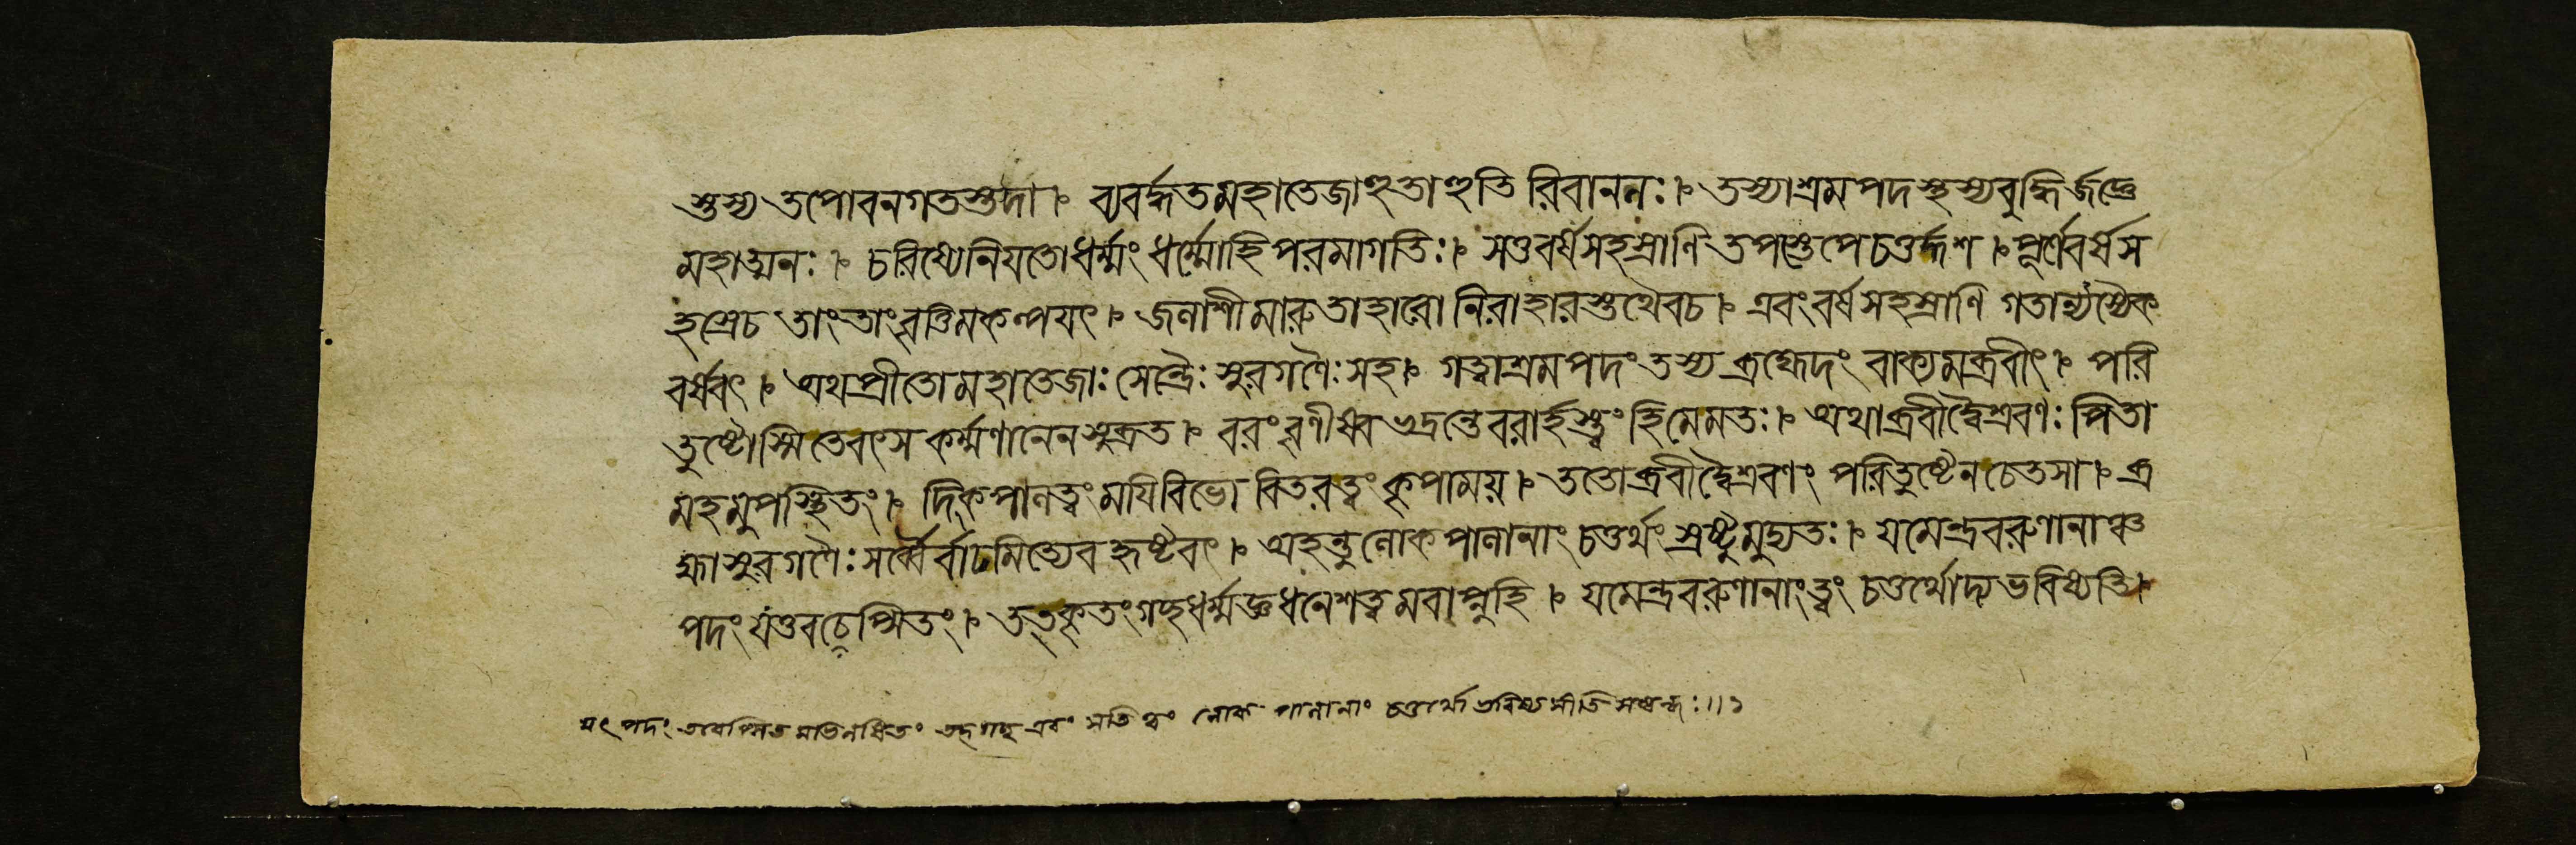 স্তস্য তপোবনগতস্তদা ৷ ব্যবর্দ্ধত মহাতেজা হুতাহুতি রিবাননঃ ৷ তস্যাশ্রম পদস্থস্য বুদ্ধির্জজ্ঞে
মহাত্মনঃ ৷ চরিষ্যেনিযতোধর্ম্মং ধর্ম্মোহি পরমাগতিঃ ৷ সতুবর্ষসহস্রাণি তপস্তেপে চতুর্দ্দশ ৷ পূর্ণেবর্ষস
হস্রেচ তাং তাংবৃত্তিমকল্পযৎ ৷ জলাশী মারুতাহারো নিরাহারস্তথৈবচ ৷ এবংবর্ষ সহস্রাণি গতান্যস্যৈক
বর্ষবৎ ৷ অথপ্রীতো মহাতেজাঃ সেন্দ্রৈঃ সুরগণৈঃ সহ ৷ গত্বাশ্রমপদং তস্য ব্রহ্মেদং বাক্যমব্রবীৎ ৷ পরি
তুষ্টোস্মি তেবৎস কর্ম্মণানেন সুব্রত ৷ বরংবৃণীষ্ব ভদ্রন্তে বরার্হস্ত্বং হিমেমতঃ ৷ অথাব্রবীদ্বৈশ্রবণঃ পিতা
মহমুপস্থিতং ৷ দিক্পালত্বং মযিবিভো বিতরত্বং কৃপাময় ৷ ততোব্রবীদ্বৈশ্রবণং পরিতুষ্টেন চেতসা ৷ ব্র
হ্মাসুরগণৈঃ সর্ব্বৈর্বাঢমিত্যেব হৃষ্টবৎ ৷ অহন্তু লোকপালানাং চতুর্থং স্রষ্টুমুদ্যতঃ ৷ যমেন্দ্রবরুণানাঞ্চ
পদং যত্তবচেপ্সিতং ৷ তত্কৃতংগচ্ছ ধর্ম্মজ্ঞ ধনেশত্বমবাপ্নুহি ৷ যমেন্দ্রবরুণানাংত্বং চতুর্থোদ্য ভবিষ্যতি৷
যৎ পদং তবেপ্সিত মভিলষিতং তদ্গচ্ছ এবং সতি ত্বং লোক পালানাং চতুর্থো ভবিষ্যসীতি সম্বন্ধঃ ৷৷ ১